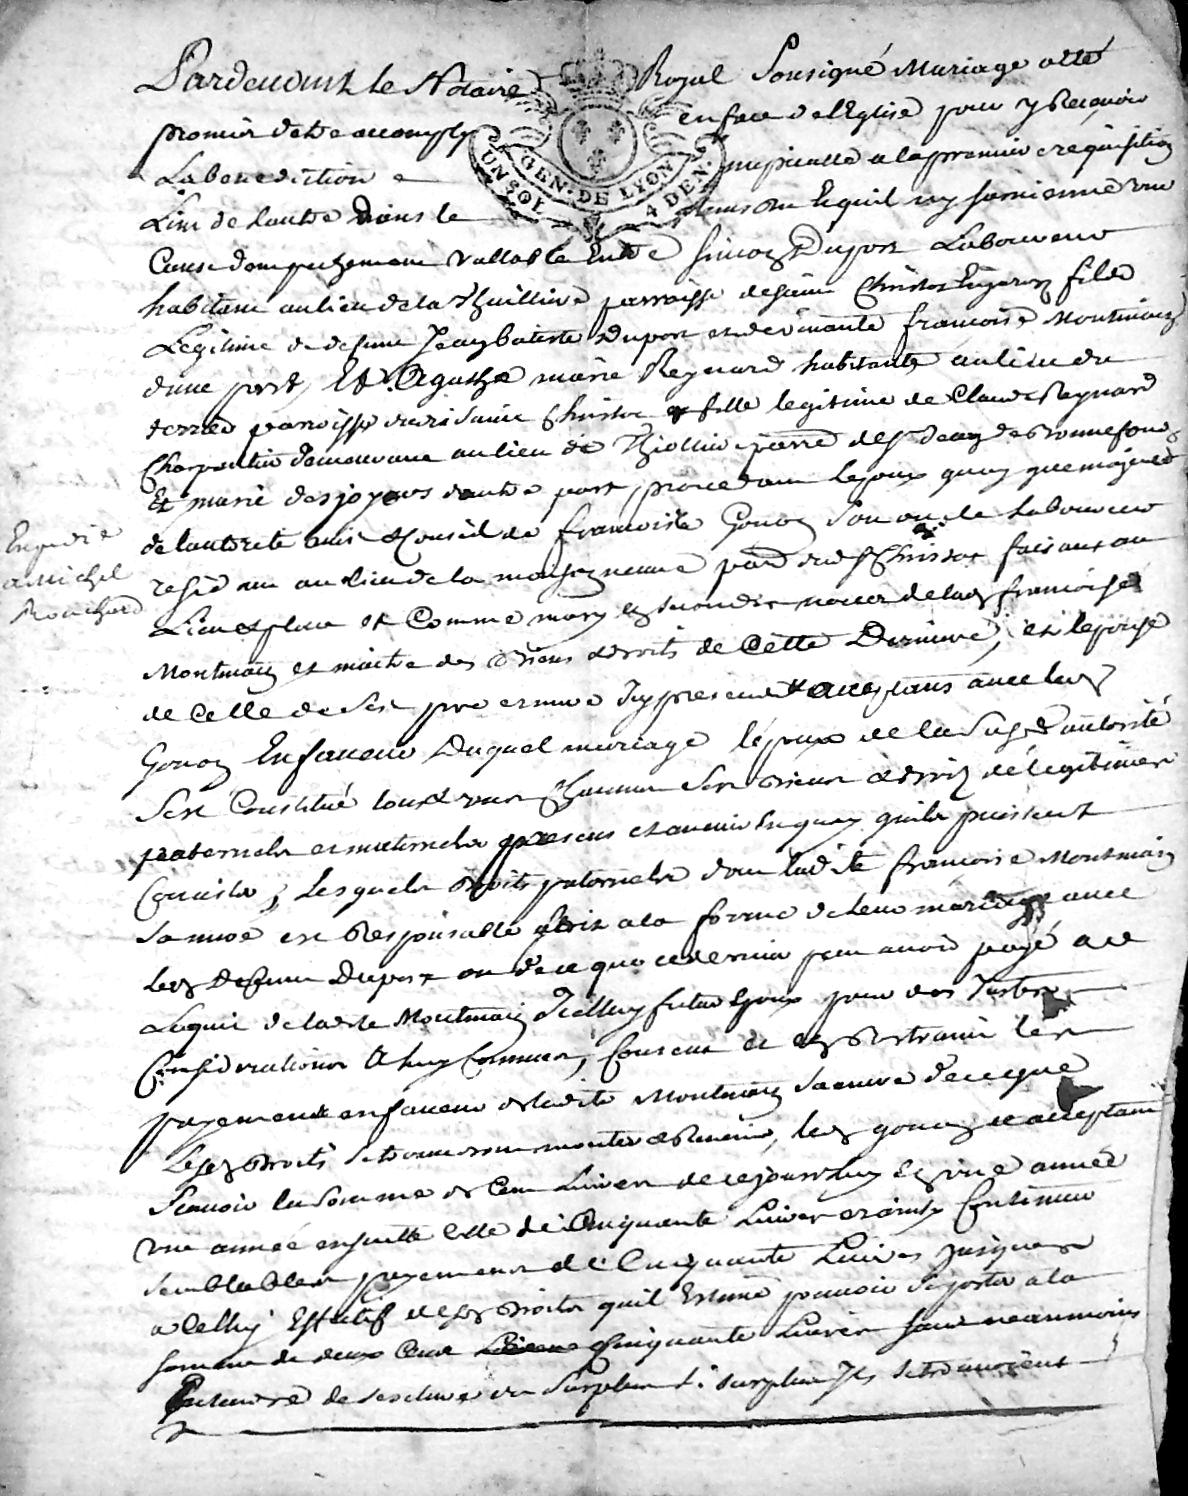 Pardevant le Notaire Royal Sousigné Mariage a été
promis detre accomply en face de lEglise pour y Recevoir
La benediction nupcialle a la premiere requisition
Lun de lautre dans le tems ou Lequil ny survienne une
Cause dempechement vallable Entre Simon Dupost Laboureur
habitant au lieu de la Thuillire parroisse de saint Christot Lizeron fils
Legitime de defunt Jean batiste Dupost et de vivante francoise Montmain
dune part, Et Agathe marie Reynard habitante au lieu du
terras parroisse dudit Saint Christot fille legitime de Claude Reynard
Charpentier demeurant au lieu de Thiollier parre de St Jean de Bonnefond
Et marie desjoyaux dautre part, procedant Lepoux quoy que majeur
de lautorité avis & Conseil de francoise Gonon Son oncle Laboureur
residant au lieu de la maisonneuve parr dud St Christot faisant au
Lieu et place et Comme mary en secondes noces de lad francoise
Montmain et maitre des Biens droits de Cette Derniere, et lepouse
de Celle de Ses pere et mere Icy presents & acceptans avec led
Gonon En faveur Duquel mariage lépoux de la Susd autorité
Sest Constitué tous et uns Chacuns Ses Biens & droits de legitimes
paternels et maternels presens et avenir En quoy quils puissent
Consister, Lesquels droits paternels dont ladite francoise Montmain
Sa mere est Responsable a la forme de leur mariage avec
led Defunt Dupost ou de ce que ce dernier peut avoir payé a ce
Lequit de ladite Montmain Icelluy futur Epoux pour des Justes
Considerations A luy Connues, Consent et en Retranir les
payements en faveur de ladite Montmain Sa mere de ce que
Lesd droits Se trouveront monter & Revenir, led gonon ce acceptant
Scavoir la somme de Cent Livres de ce jourdhuy En une année
une année ensuitte Celle de Cinquante Livres et ainsy Continuer
semblables payements de Cinquante Livres Jusques
a Celluy Effectif desd droits quil Estime pouvoir se porter a la
somme de deux Cent Cinquante Livres sauf neanmoins
de Surplus Si Surplus Ils Se trouvoient
GEN. DE LYON
UN SOL 4 DEN.
Expedié
a Michel
Rouchard